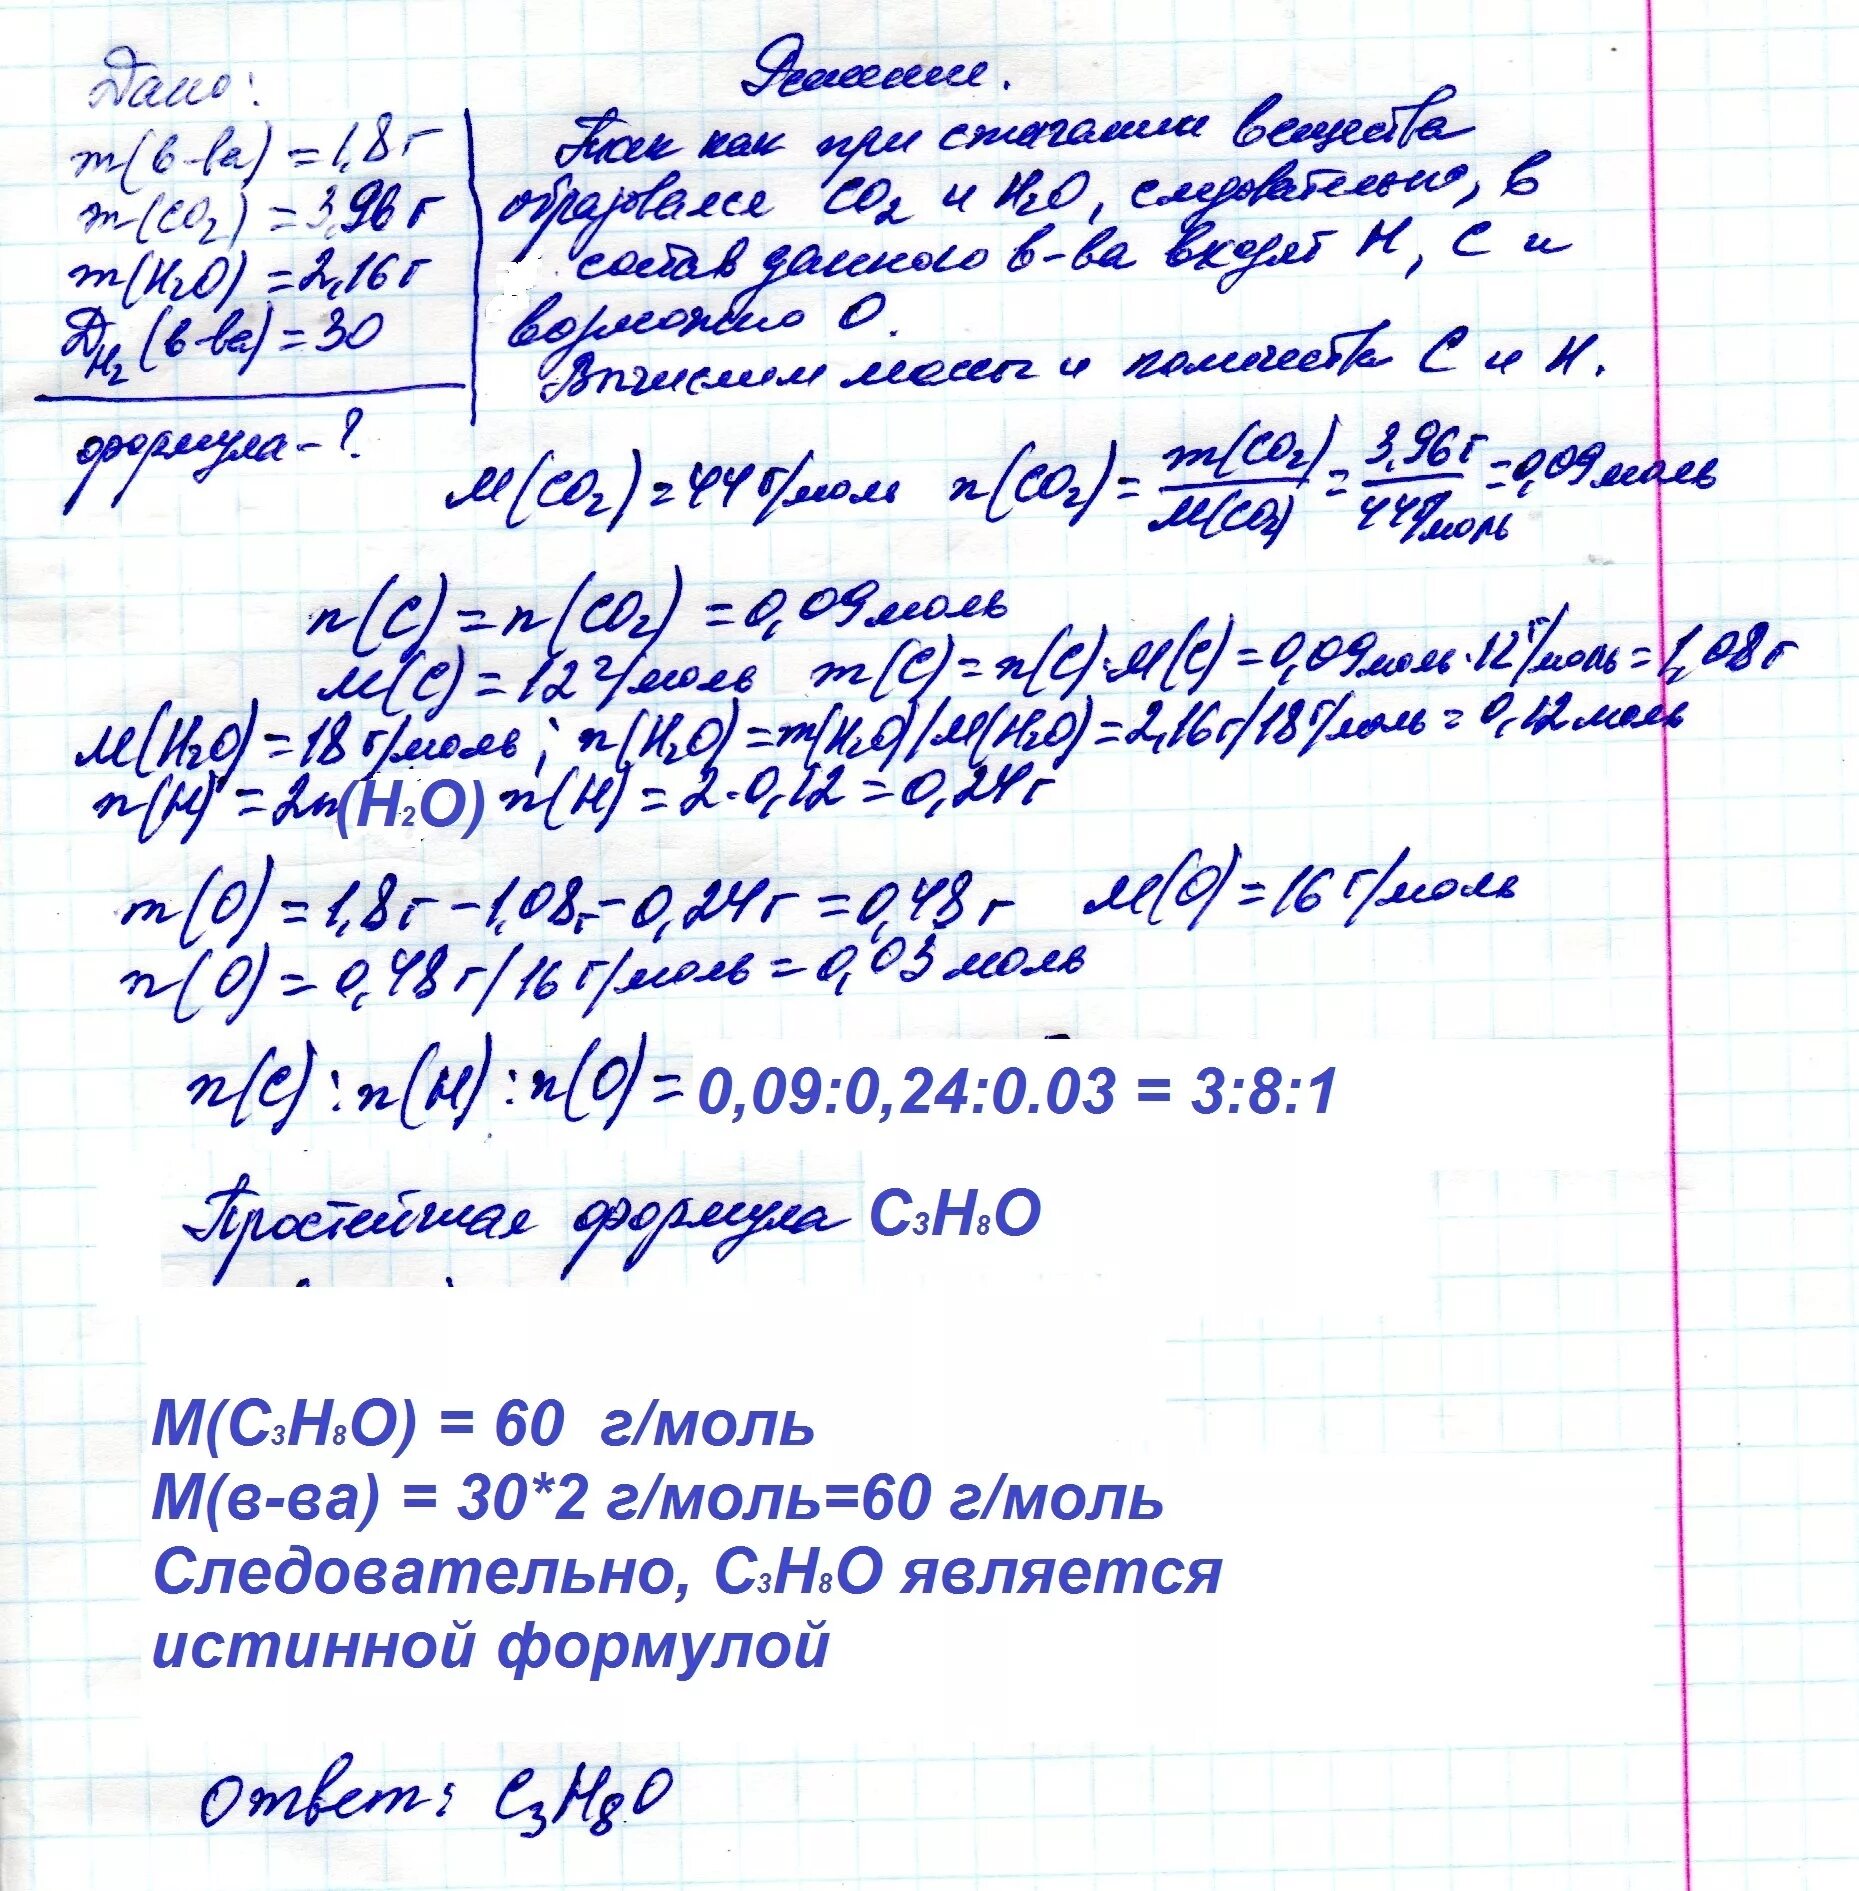 Дано:
m(в-ва) = 1,8 г
m(CO2) = 3,96 г
m(H2O) = 2,16 г
ДH2(в-ва) = 30
формула - ?
Решение.
Так как при сжигании вещества
образовался CO2 и H2O, следовательно, в
состав данного в-ва входят H, C и
возможно O.
Вычислим массы и количества C и H.
M(CO2) = 44 г/моль n(CO2) = m(CO2)/M(CO2) = 3,96 г/44 г/моль = 0,09 моль
n(C) = n(CO2) = 0,09 моль
M(C) = 12 г/моль m(C) = n(C)·M(C) = 0,09 моль·12 г/моль = 1,08 г
M(H2O) = 18 г/моль; n(H2O) = m(H2O)/M(H2O) = 2,16 г/18 г/моль = 0,12 моль
n(H) = 2n(H2O) n(H) = 2·0,12 = 0,24 г
m(O) = 1,8 г - 1,08 г - 0,24 г = 0,48 г M(O) = 16 г/моль
n(O) = 0,48 г/16 г/моль = 0,03 моль
n(C) : n(H) : n(O) = 0,09:0,24:0.03 = 3:8:1
Простейшая формула C3H8O
М(C3H8O) = 60 г/моль
М(в-ва) = 30*2 г/моль=60 г/моль
Следовательно, C3H8O является
истинной формулой
Ответ: C3H8O